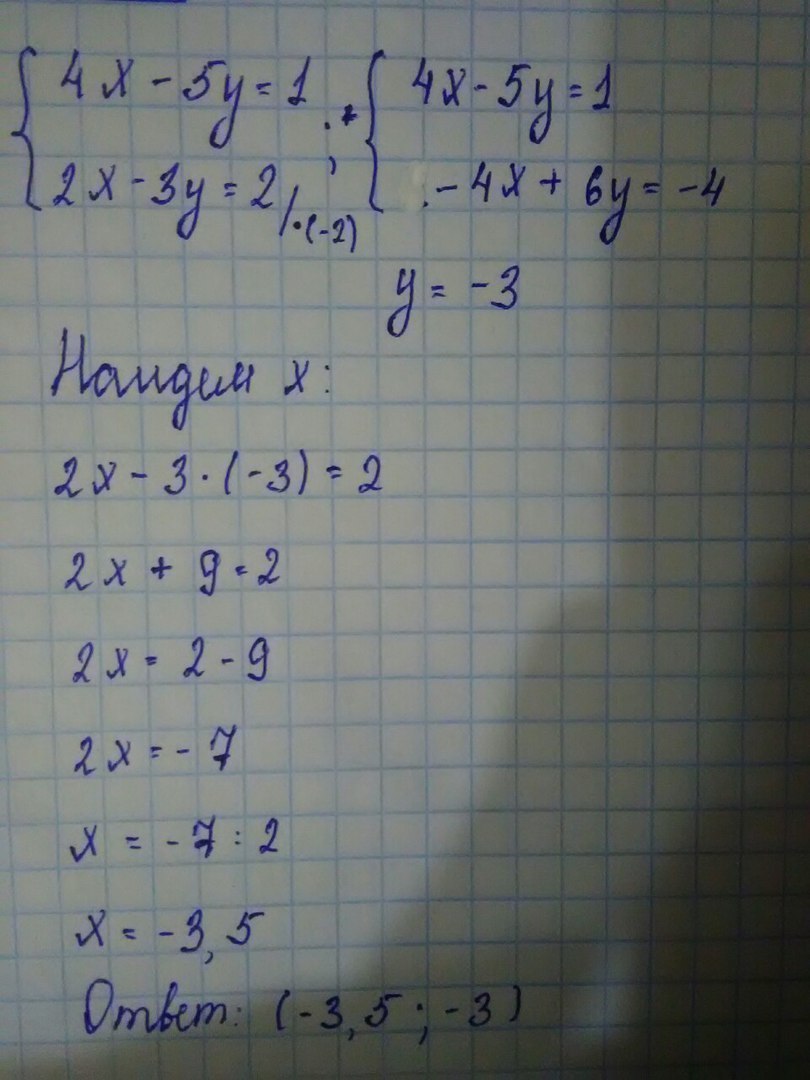 4x - 5y = 1 ; + 4x - 5y = 1
2x - 3y = 2 /·(-2) -4x + 6y = -4
y = -3
Найдем x:
2x - 3·(-3) = 2
2x + 9 = 2
2x = 2 - 9
2x = -7
x = -7 : 2
x = -3,5
Ответ: (-3,5 ; -3)